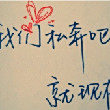 我们私奔吧
就现在